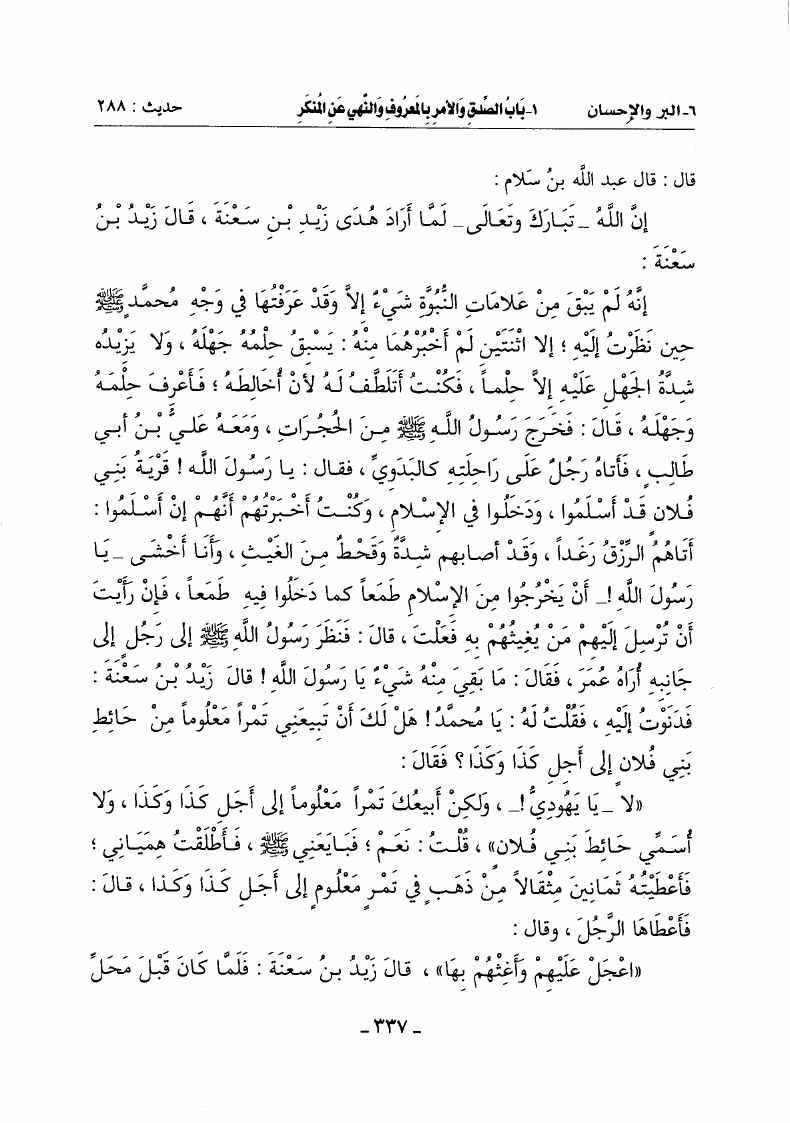 ٦- البر والإحسان ١- بَابُ الصِّدقِ وَالأمرِ بِالمَعرُوفِ وَالنَّهيِ عَنِ المُنكَرِ حديث : ٢٨٨
قال : قال عبد الله بنُ سَلام :
إنَّ اللَّهُ _ تَبَارَكَ وتَعَالَى_ لَمَّا أَرَادَ هُدَى زَيْدِ بْنِ سَعْنَةَ ، قَالَ زَيْدُ بْنُ
سَعْنَةَ :
إنَّهُ لَمْ يَبْقَ مِنْ عَلامَاتِ النُّبُوَّةِ شَيْءٌ إلاَّ وَقَدْ عَرَفْتُهَا فِي وَجْهِ مُحمَّدٍ ﷺ
حِين نَظَرْتُ إلَيْهِ ؛ إلا اثْنَتَيْنِ لَمْ أَخْبُرْهُمَا مِنْهُ : يَسْبِقُ حِلْمُهُ جَهْلَهُ ، وَلا يَزِيْدُه
شِدَّةُ الجَهْلِ عَلَيْهِ إلاَّ حِلْماً ، فَكُنْتُ أَتَلَطَّفُ لَهُ لأنْ أُخَالِطَهُ ؛ فَأَعْرِفَ حِلْمَهُ
وَجَهْلَهُ ، قَالَ : فَخَرَجَ رَسُولُ اللَّهِ ﷺ مِنَ الحُجُرَاتِ ، وَمَعَهُ عَلـيُّ بْنُ أَبي
طَالِبٍ ، فَأَتاهُ رَجُلٌ عَلَى رَاحِلَتِهِ كَالبَدَوِيِّ ، فقال : يا رَسُولَ اللَّه ! قَرْيَةُ بَنِي
فُلان قَدْ أَسْلَمُوا ، وَدَخَلُوا فِي الإسْلامِ ، وَكُنْتُ أَخْبَرْتُهُمْ أَنَّهُمْ إنْ أَسْلَمُوا :
أتَاهُمُ الرِّزْقُ رَغَداً ، وَقَدْ أصابهم شِدَّةٌ وَقَحْطٌ مِنَ الغَيْثِ ، وَأَنا أَخْشَى _يَا
رَسُولَ اللَّهِ !_ أَنْ يَخْرُجُوا مِنَ الإسْلامِ طَمَعاً كما دَخَلُوا فيه طَمَعاً ، فَإنْ رَأَيْتَ
أَنْ تُرْسِلَ إلَيْهِمْ مَنْ يُغِيثُهُمْ بِهِ فَعَلْتَ ، قالَ : فَنَظَرَ رَسُولُ اللَّهِ ﷺ إلى رَجُلٍ إلى
جَانِبِهِ أُرَاهُ عُمَرَ ، فَقَالَ : مَا بَقِيَ مِنْهُ شَيْءٌ يَا رَسُولَ اللَّهِ ! قالَ زَيْدُ بْنُ سَعْنَةَ :
فَدَنَوْتُ إلَيْهِ ، فَقُلْتُ لَهُ : يَا مُحمَّدُ ! هَلْ لَكَ أَنْ تَبِيعَنِي تَمْراً مَعْلُوماً مِنْ حَائِطِ
بَنِي فُلانٍ إلى أَجلِ كَذَا وَكَذَا ؟ فَقَالَ :
«لا _يَا يَهُودِيُّ !_ ، وَلَكِنْ أَبيعُكَ تَمْراً مَعْلُوماً إلى أَجَلِ كَذَا وَكَذَا ، وَلا
أُسَمِّي حَائِطَ بَنِي فُلان» ، قُلْتُ : نَعَمْ ؛ فَبَايَعَنِي ﷺ ، فَأَطْلَقْتُ هِمْيَانِي ؛
فَأَعْطَيْتُهُ ثَمَانِينَ مِثْقَالاً مِنْ ذَهَبٍ فِي تَمْرٍ مَعْلُومٍ إلى أَجَلِ كَذَا وَكَذَا ، قالَ :
فَأَعْطَاهَا الرَّجُلَ ، وقال :
«اعْجَلْ عَلَيهِمْ وَأَغِثْهُمْ بِهَا» ، قالَ زَيْدُ بن سَعْنَةَ : فَلَمَّا كَانَ قَبْلَ مَحَلِّ
_ ٣٣٧ _